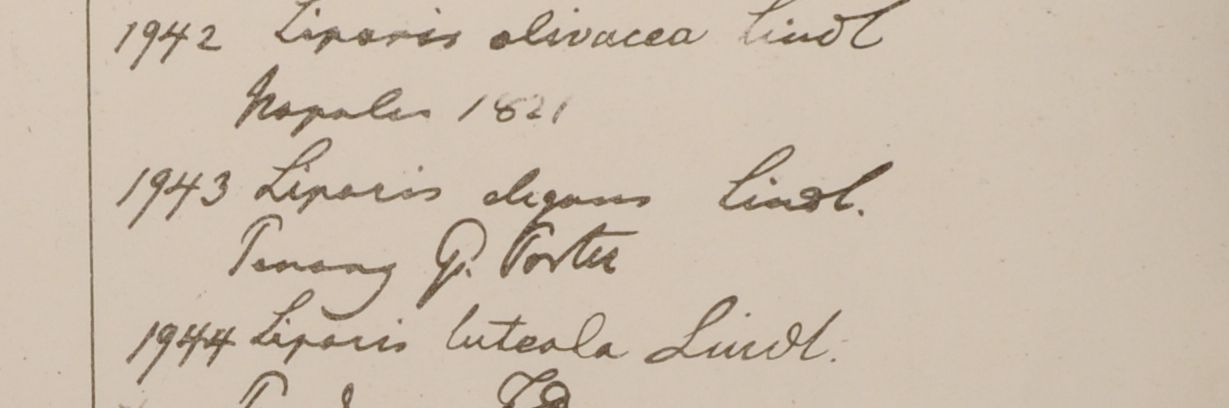 1942 Liparis olivacea Lindl
Napalia 1821
1943 Liparis elegans Lindl.
Penang G. Porter
1944 Liparis luteola Lindl.